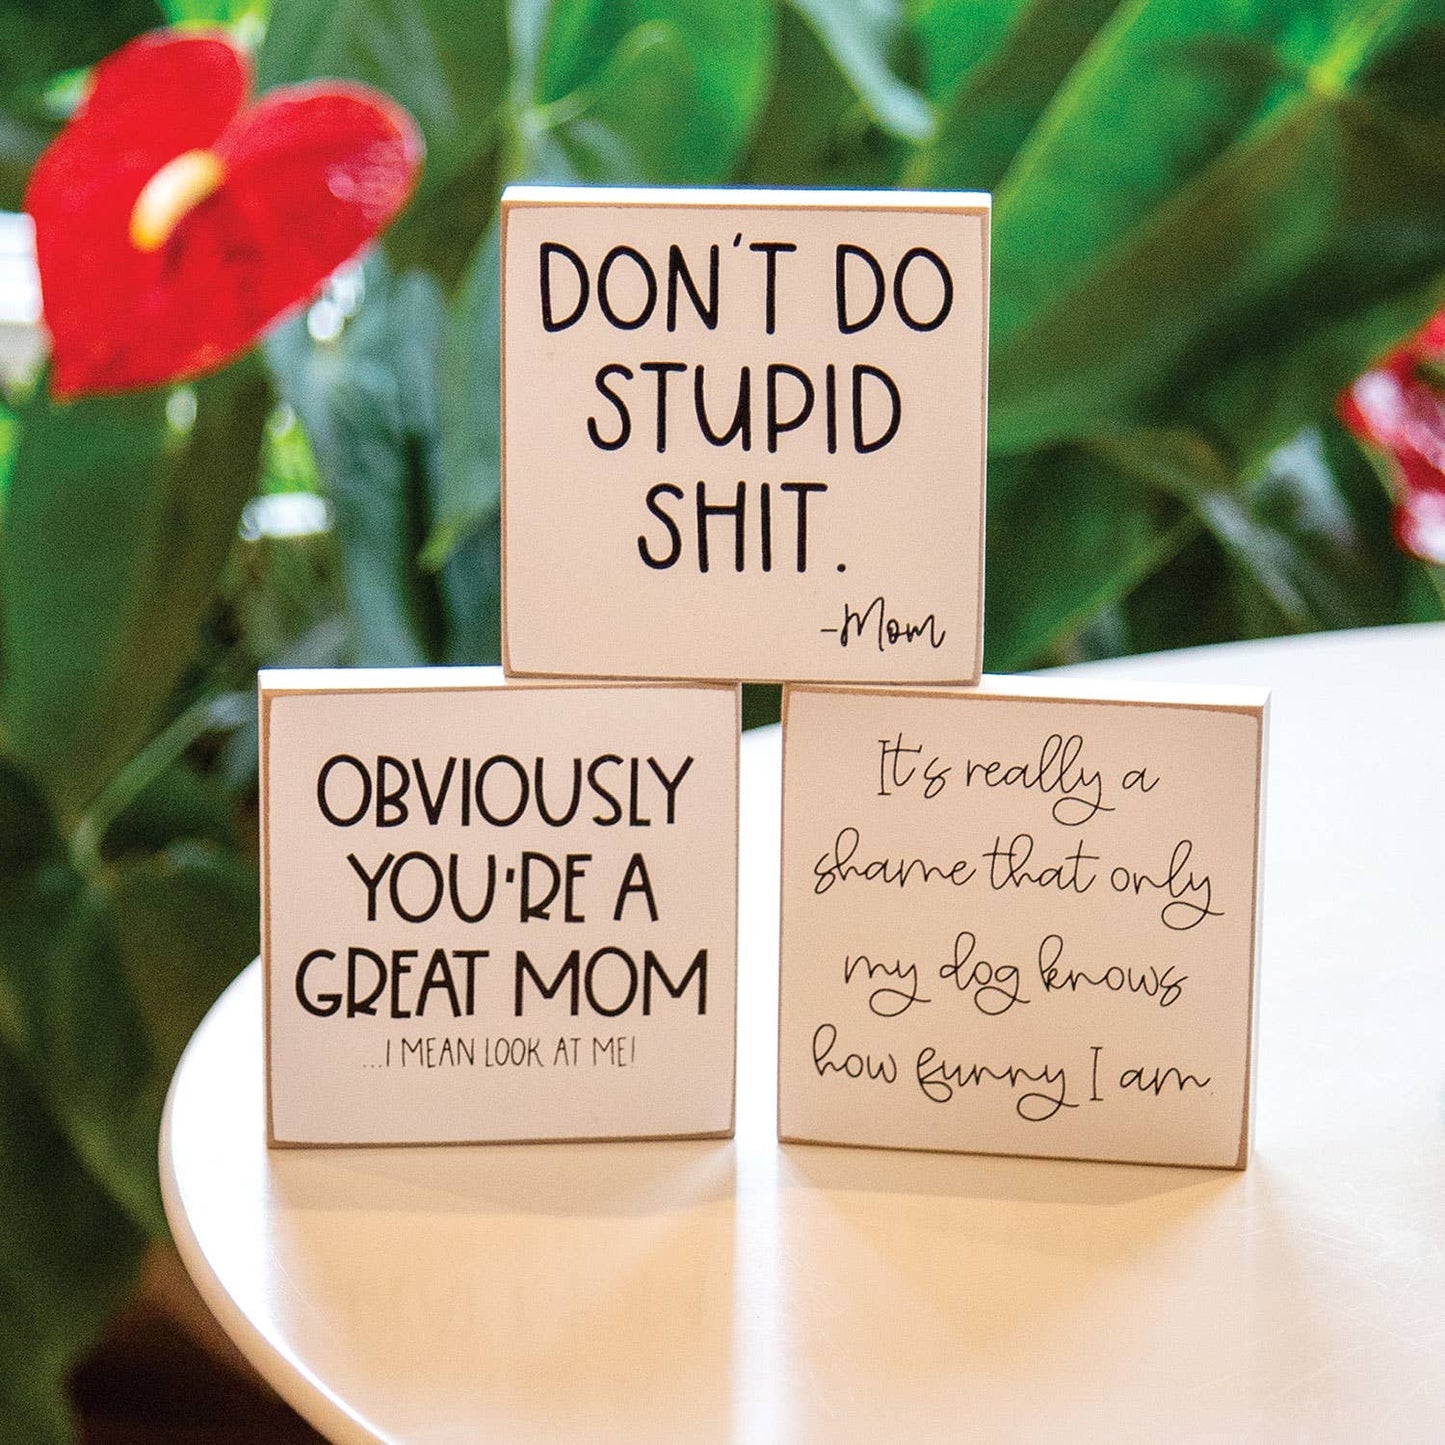 DON'T DO
STUPID
SHIT.
-Mom
OBVIOUSLY
YOU'RE A
GREAT MOM
...I MEAN LOOK AT ME!
It's really a
shame that only
my dog knows
how funny I am.